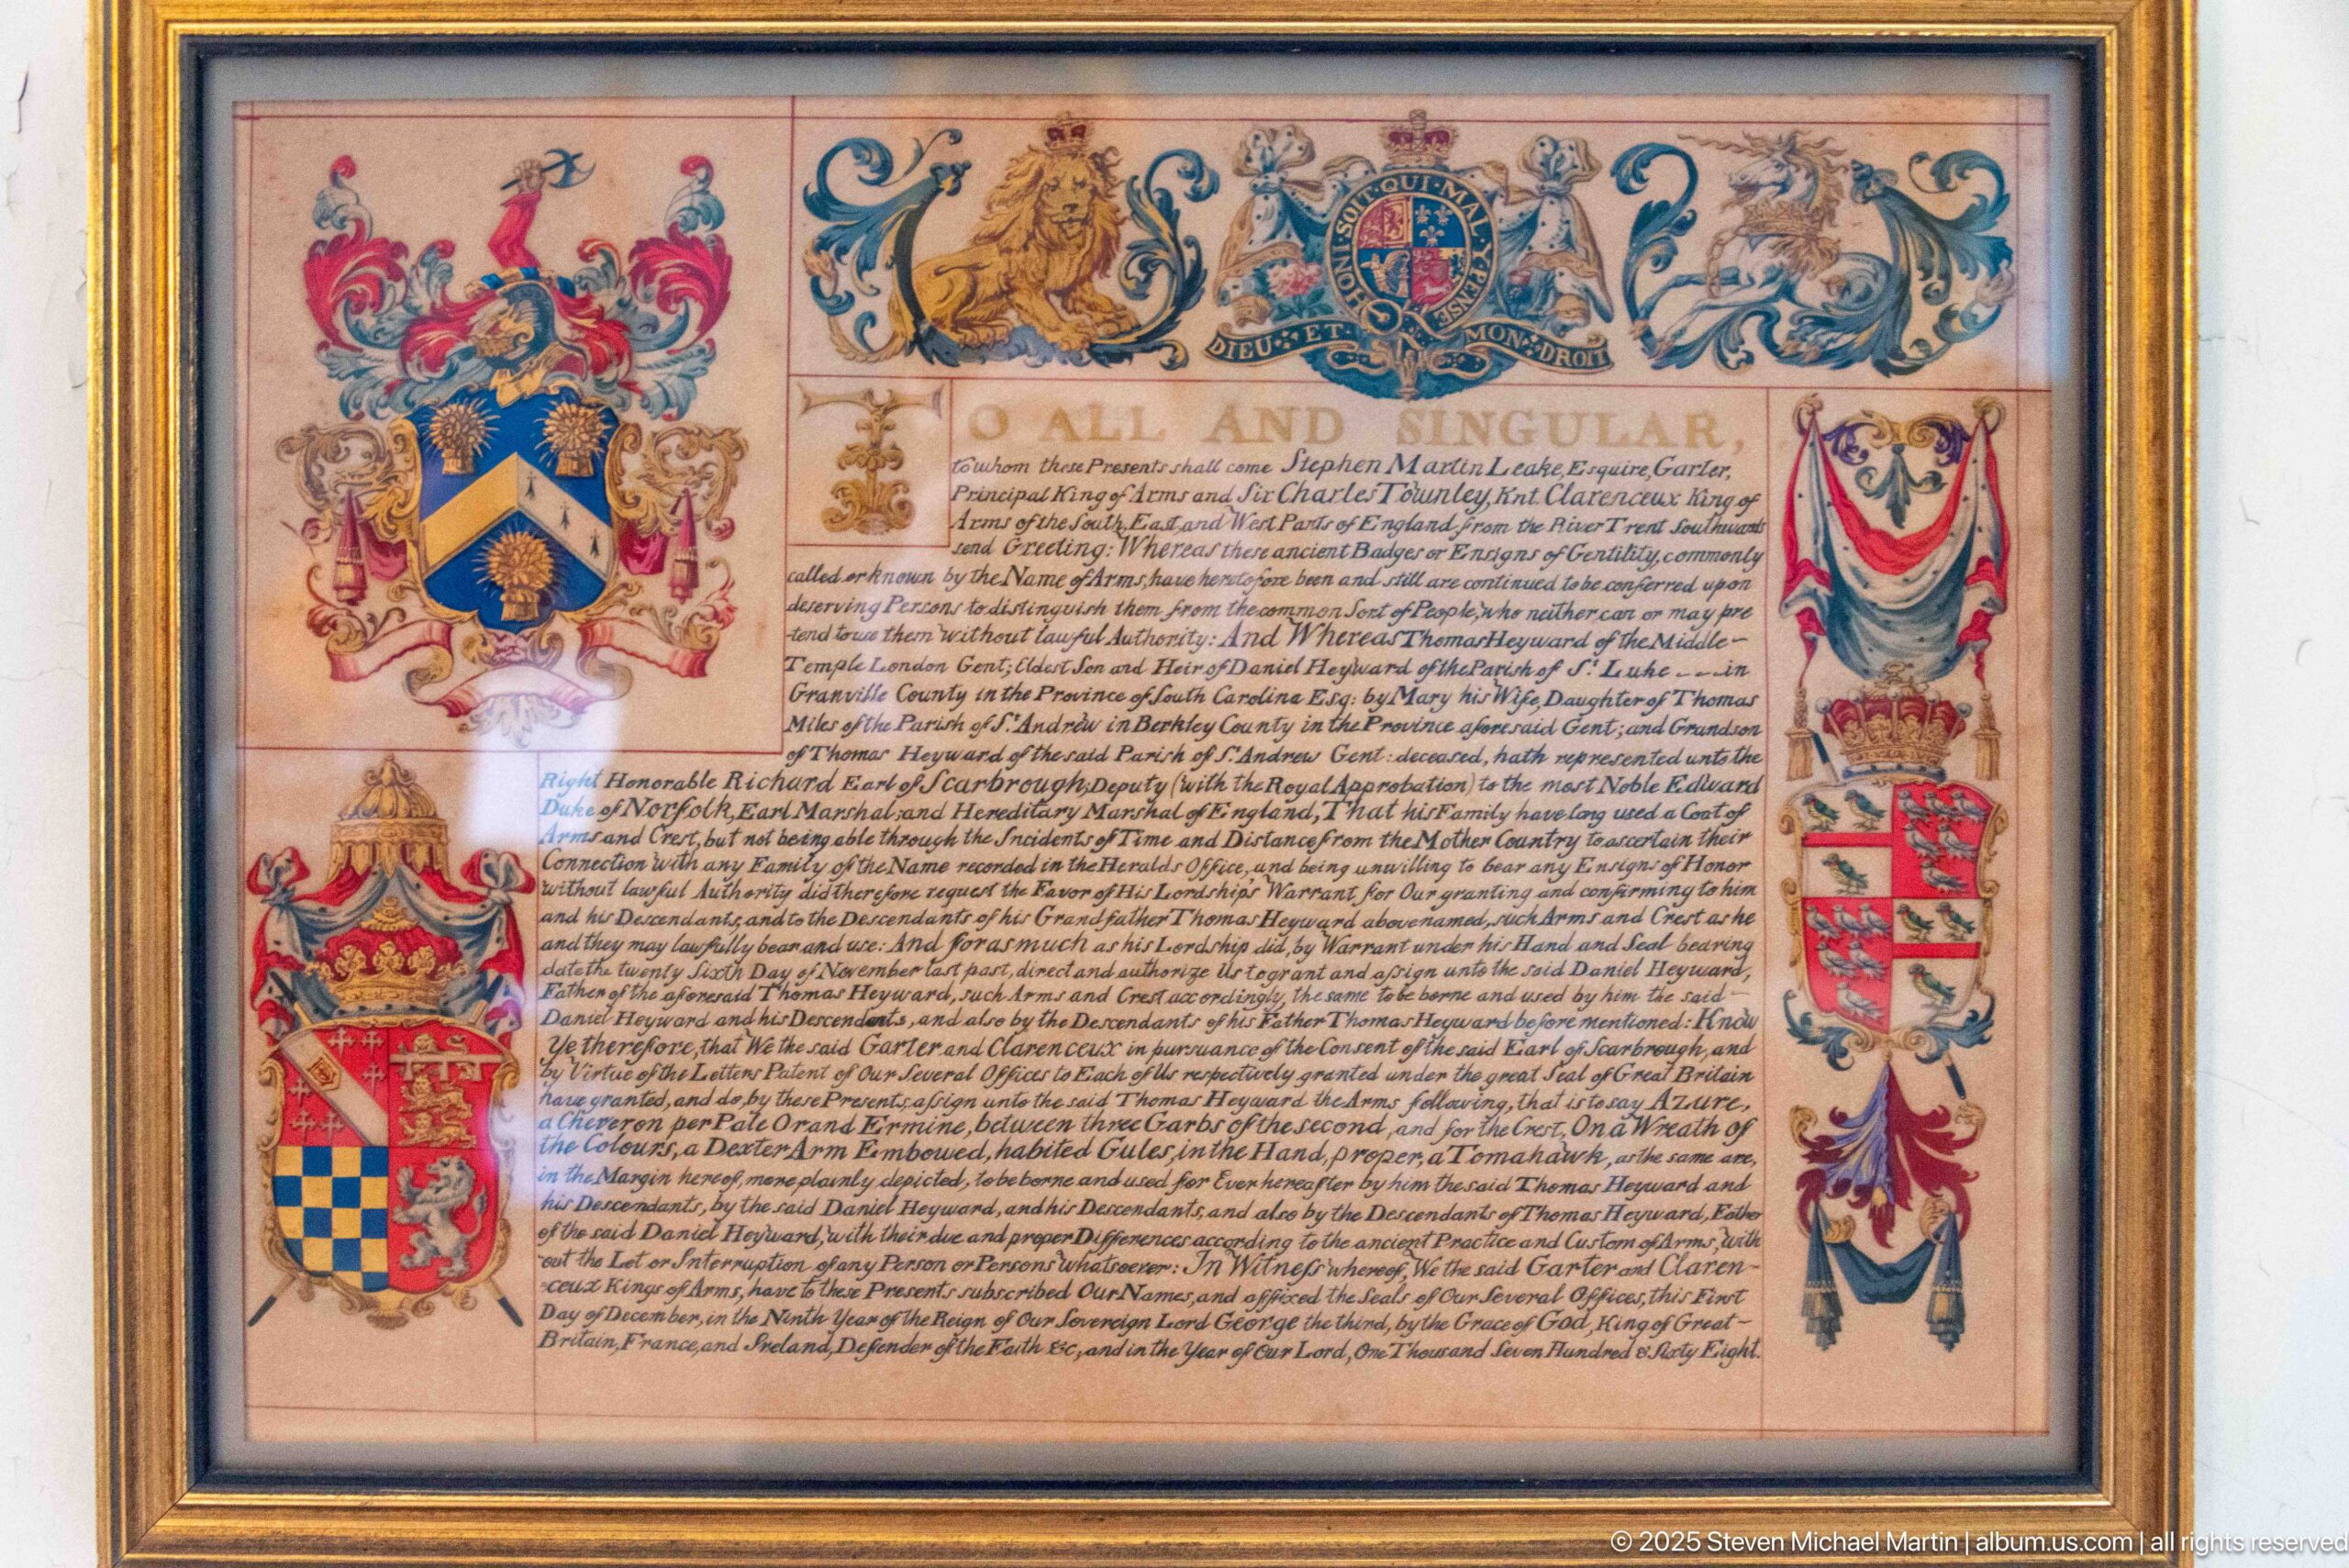 HONI·SOIT·QUI·MAL·Y·PENSE
DIEU·ET·MON·DROIT
TO ALL AND SINGULAR,
to whom these Presents shall come Stephen Martin Leake, Esquire, Garter,
Principal King of Arms and Sir Charles Townley, Knt. Clarenceux King of
Arms of the South, East, and West Parts of England from the River Trent Southwards
send Greeting: Whereas these ancient Badges or Ensigns of Gentility, commonly
called or known by the Name of Arms, have heretofore been and still are continued to be conferred upon
deserving Persons to distinguish them from the common Sort of People, who neither can or may pre
-tend to use them without lawful Authority: And Whereas Thomas Heyward of the Middle-
Temple London Gent; Eldest Son and Heir of Daniel Heyward of the Parish of St. Luke ---in
Granville County in the Province of South Carolina Esq: by Mary his Wife, Daughter of Thomas
Miles of the Parish of St. Andrew in Berkley County in the Province aforesaid Gent; and Grandson
of Thomas Heyward of the said Parish of St. Andrew Gent: deceased, hath represented unto the
Right Honorable Richard Earl of Scarbrough, Deputy (with the Royal Approbation) to the most Noble Edward
Duke of Norfolk, Earl Marshal, and Hereditary Marshal of England, That his Family have long used a Coat of
Arms and Crest, but not being able through the Incidents of Time and Distance from the Mother Country to ascertain their
Connection with any Family of the Name recorded in the Heralds Office, and being unwilling to bear any Ensigns of Honor
without lawful Authority did therefore request the Favor of His Lordship's Warrant for Our granting and confirming to him
and his Descendants, and to the Descendants of his Grandfather Thomas Heyward abovenamed, such Arms and Crest as he
and they may lawfully bear and use: And forasmuch as his Lordship did, by Warrant under his Hand and Seal bearing
date the twenty Sixth Day of November last past, direct and authorize Us to grant and assign unto the said Daniel Heyward,
Father of the aforesaid Thomas Heyward, such Arms and Crest accordingly, the same to be borne and used by him the said-
Daniel Heyward and his Descendants, and also by the Descendants of his Father Thomas Heyward before mentioned: Know
Ye therefore, that We the said Garter and Clarenceux in pursuance of the Consent of the said Earl of Scarbrough, and
by Virtue of the Letters Patent of Our Several Offices to Each of Us respectively granted under the great Seal of Great Britain
have granted, and do, by these Presents, assign unto the said Thomas Heyward the Arms following, that is to say Azure,
a Cheveron per Pale Or and Ermine, between three Garbs of the second, and for the Crest, On a Wreath of
the Colours, a Dexter Arm Embowed, habited Gules, in the Hand, proper, a Tomahawk, as the same are,
in the Margin hereof, more plainly depicted, to be borne and used for Ever hereafter by him the said Thomas Heyward and
his Descendants, by the said Daniel Heyward, and his Descendants, and also by the Descendants of Thomas Heyward, Father
of the said Daniel Heyward, with their due and proper Differences according to the ancient Practice and Custom of Arms, with
-out the Let or Interruption of any Person or Persons whatsoever: In Witness whereof, We the said Garter and Claren-
-ceux Kings of Arms, have to these Presents subscribed Our Names, and affixed the Seals of Our Several Offices, this First
Day of December, in the Ninth Year of the Reign of Our Sovereign Lord George the third, by the Grace of God, King of Great-
Britain, France, and Ireland, Defender of the Faith &c, and in the Year of Our Lord, One Thousand Seven Hundred & Sixty Eight.
© 2025 Steven Michael Martin | album.us.com | all rights reserved